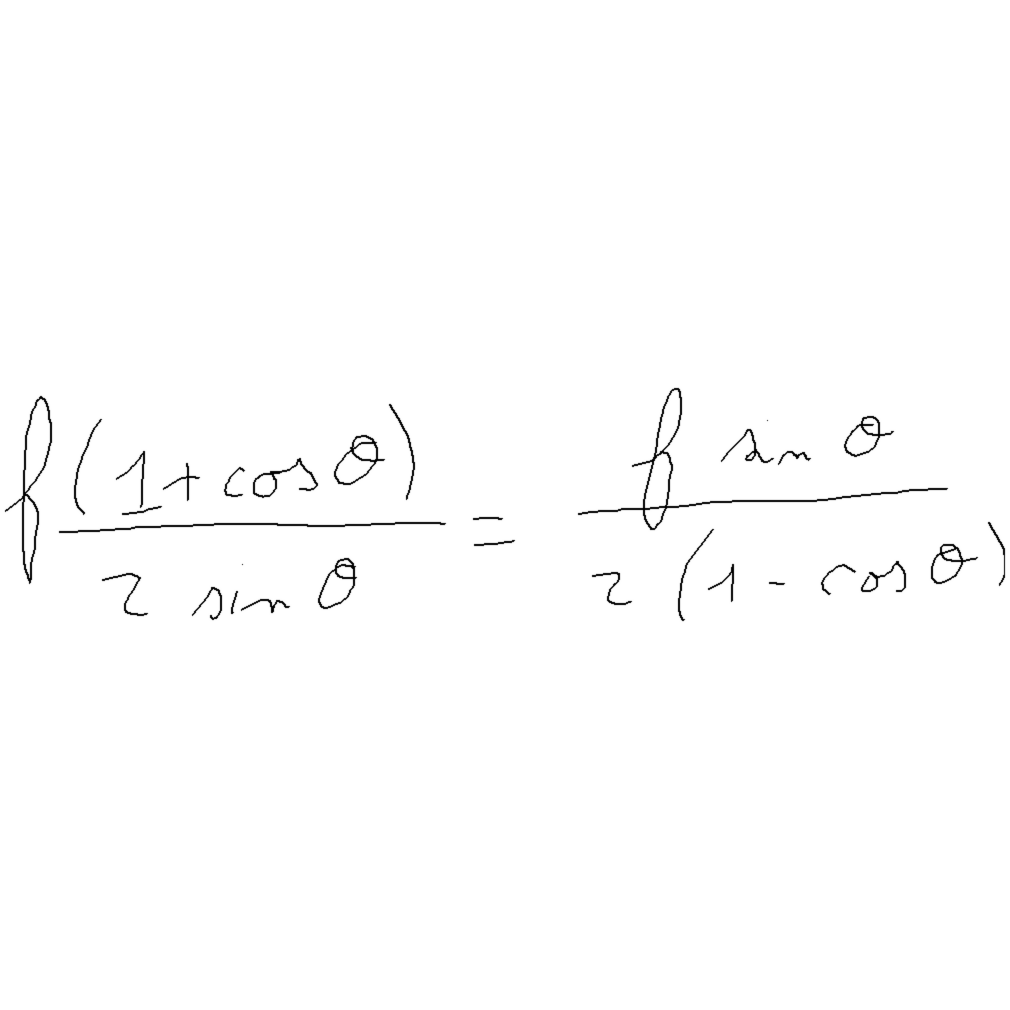 \frac{f(1+\cos\theta)}{2\sin\theta} = \frac{f\sin\theta}{2(1-\cos\theta)}